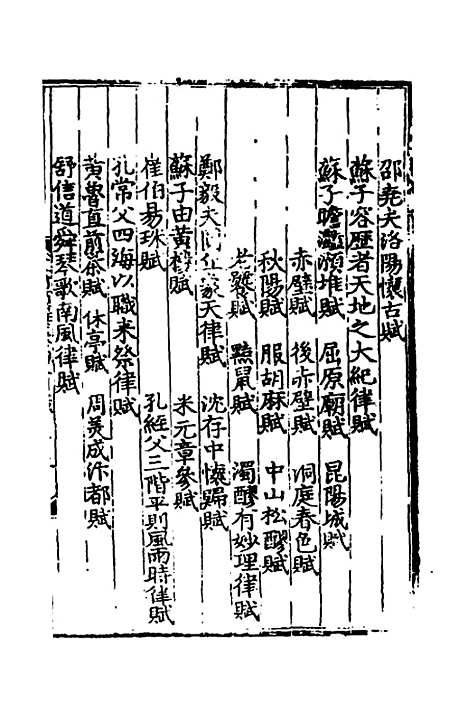 邵堯夫洛陽懷古賦
蘇子容歷者天地之大紀律賦
蘇子瞻灩澦堆賦 屈原廟賦 昆陽城賦
赤壁賦 後赤壁賦 洞庭春色賦
秋陽賦 服胡麻賦 中山松醪賦
老饕賦 黠鼠賦 濁醪有妙理律賦
鄭毅夫圓丘象天律賦 沈存中懷歸賦
蘇子由黃樓賦 米元章參賦
崔伯易珠賦 孔經父三階平則風雨時律賦
孔常父四海以職來祭律賦
黃魯直煎茶賦 休亭賦 周美成汴都賦
舒信道舜琴歌南風律賦